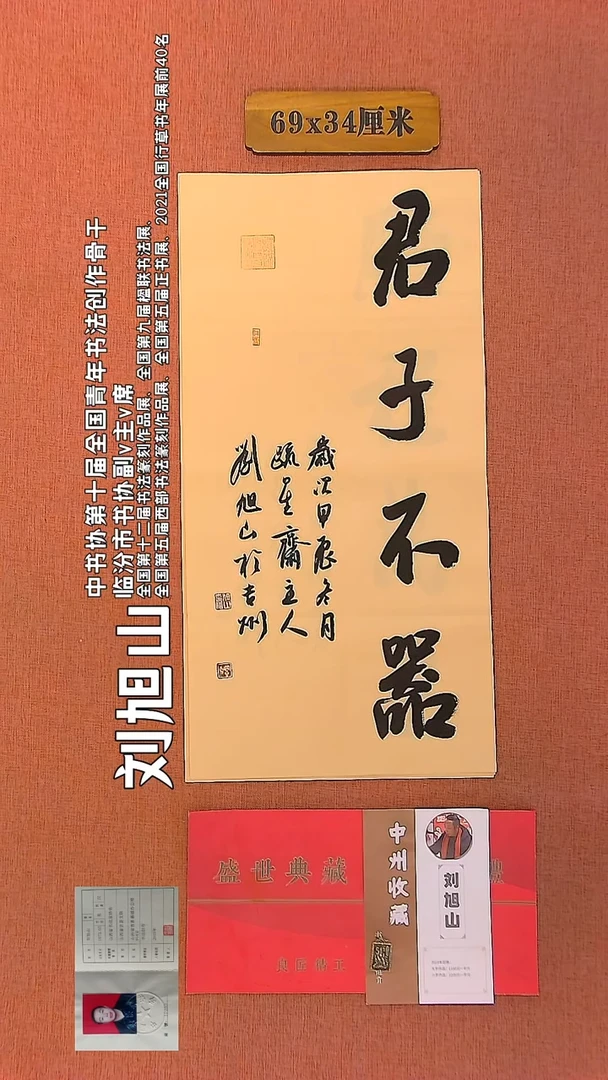 69x34厘米
君子不器
歲次甲辰冬月
疏星齋主人
劉旭山於吉州
刘旭山
中书协第十届全国青年书法创作骨干
临汾市书协副v主v席
全国第十二届书法篆刻作品展、全国第九届楹联书法展、
全国第五届西部书法篆刻作品展、全国第五届正书展、2021全国行草书年展前40名
盛世典藏
中州收藏
刘旭山